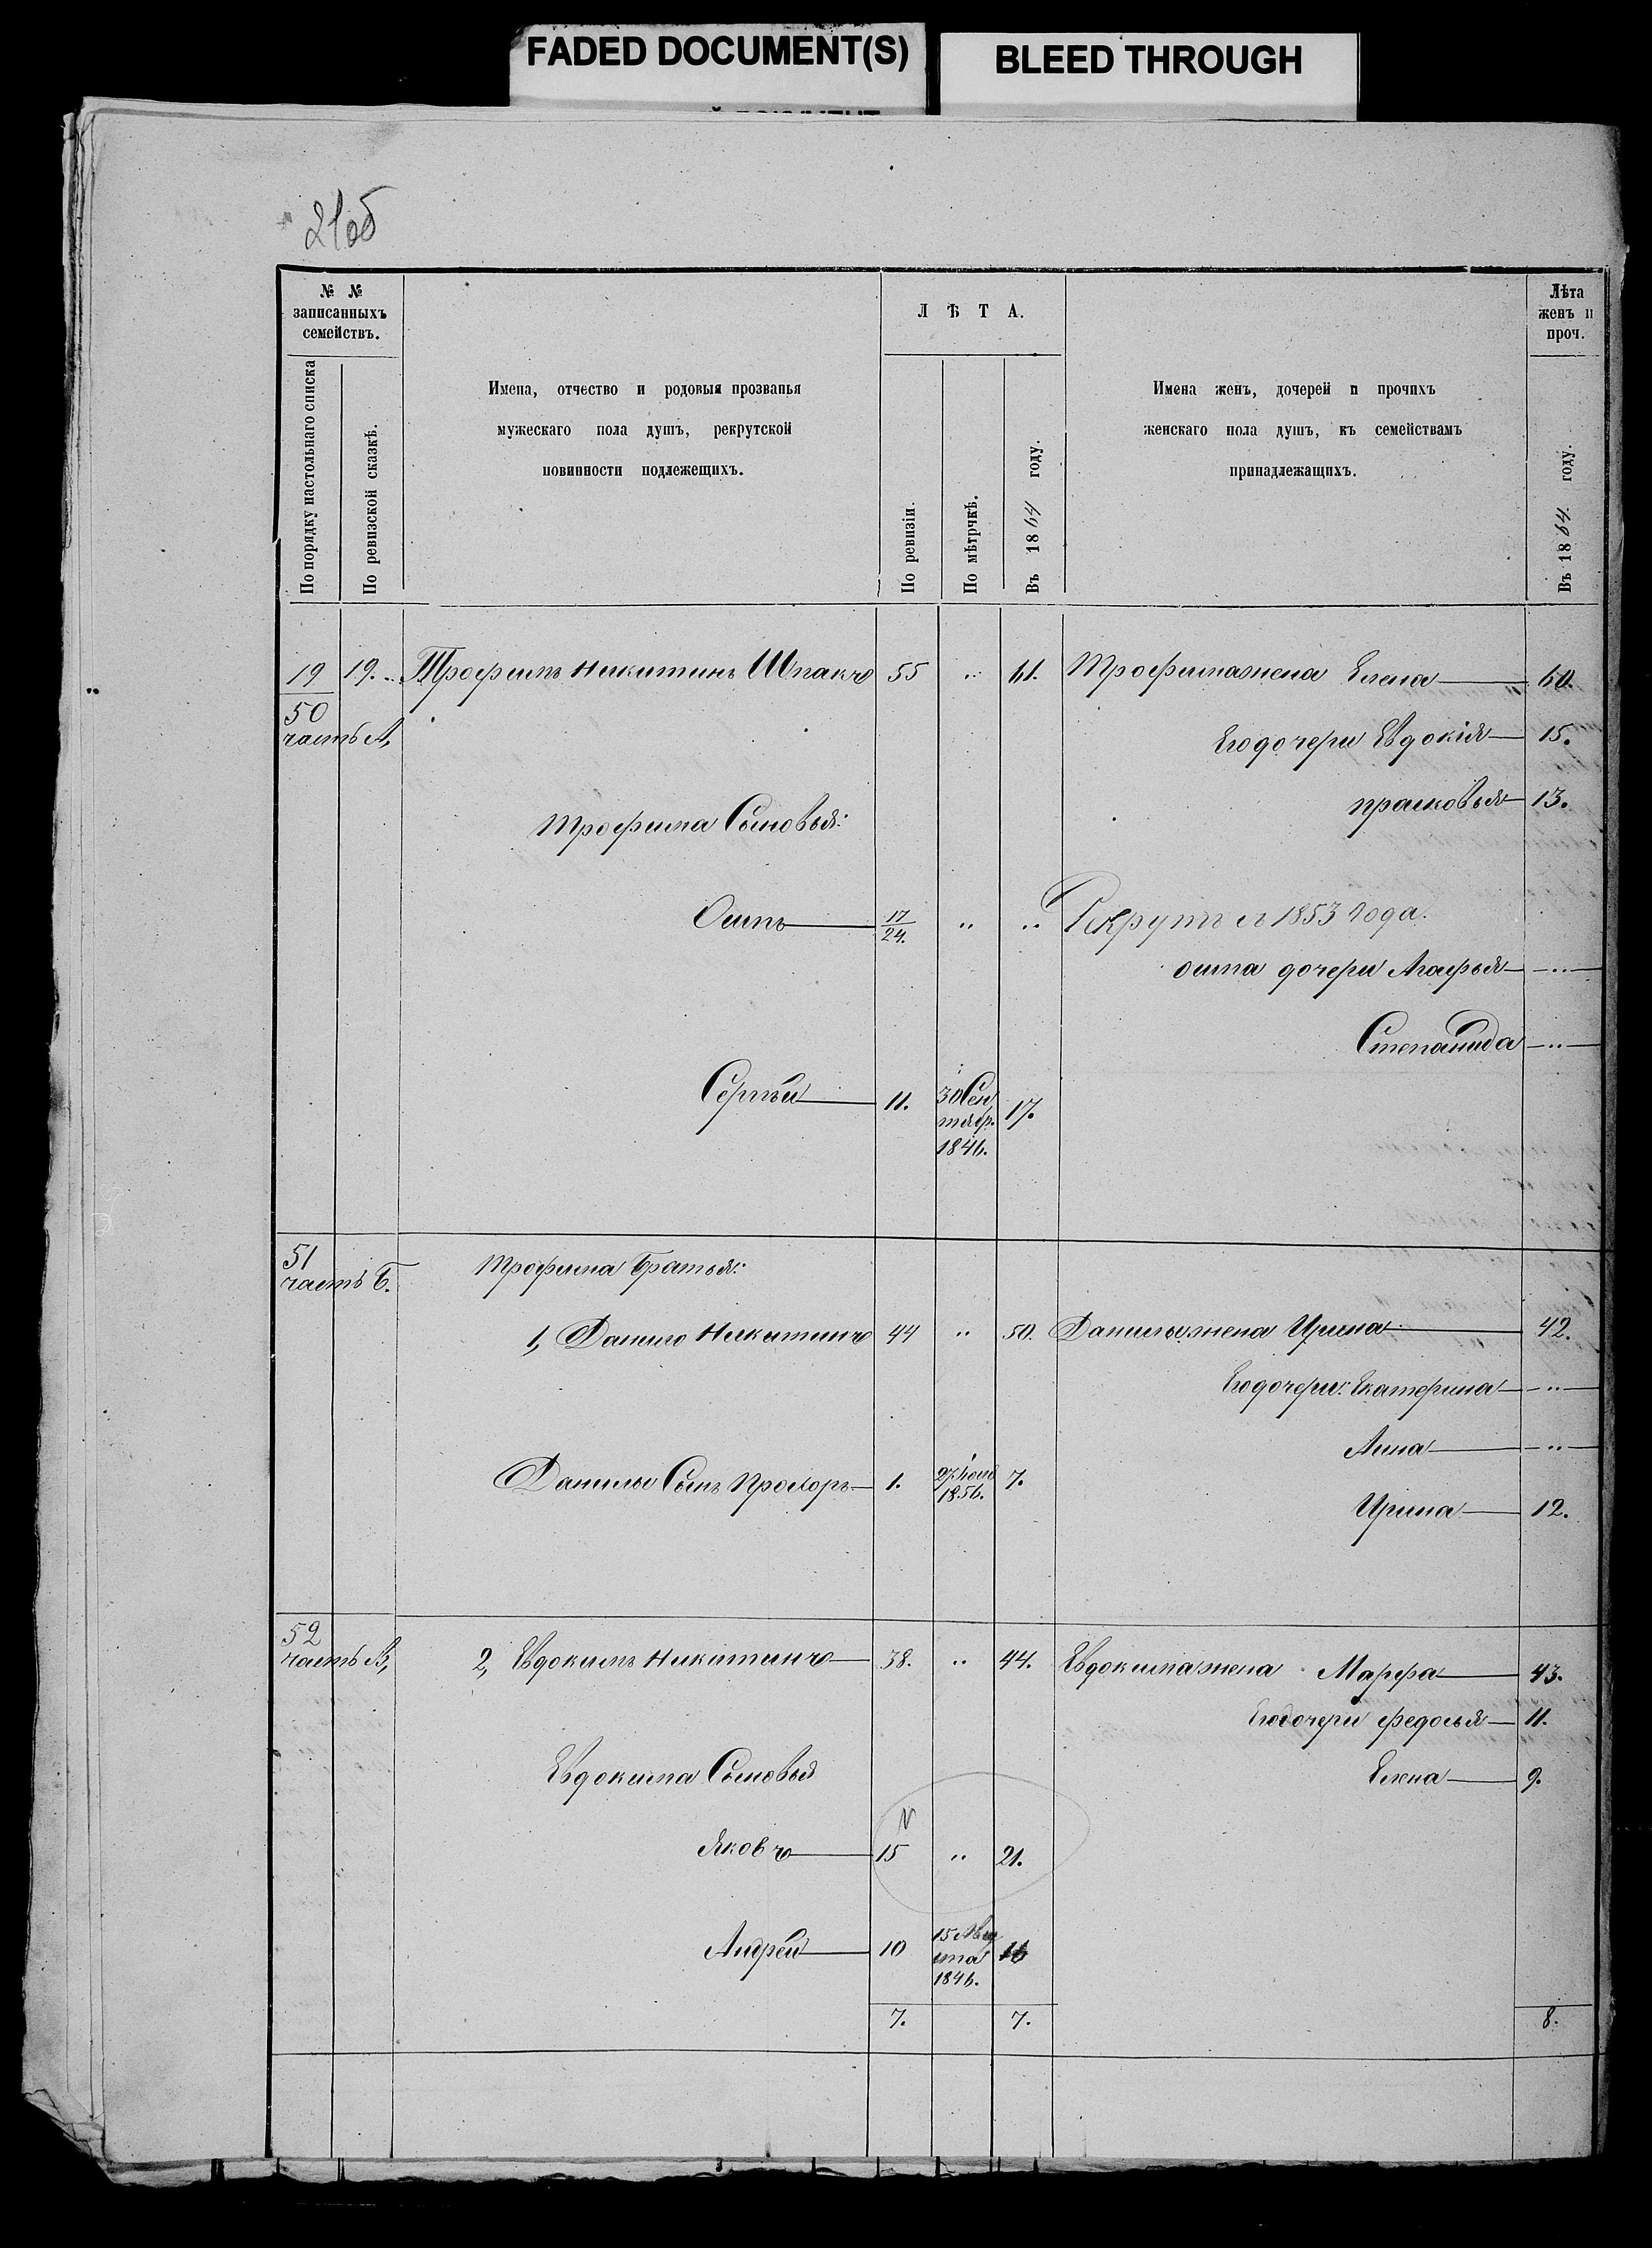 FADED DOCUMENT(S)
BLEED THROUGH
21об
№ №
записанныхъ
семействъ.
По порядку настольнаго списка
По ревизской сказкѣ.
Имена, отчество и родовыя прозванья
мужескаго пола душъ, рекрутской
повинности подлежещихъ.
ЛѢТА.
По ревизіи.
По мѣтрчкѣ.
Въ 1864 году.
Имена женъ, дочерей и прочихъ
женскаго пола душъ, къ семействамъ
принадлежащихъ.
Лѣта
женъ и
проч.
Въ 1864 году.
19 19. Трофимъ Никитинъ Шпакъ 55 " 61. Трофима жена Елена 60.
50
часть А,
Его дочери Евдокія 15.
прасковья 13.
Трофима Сыновья:
Осипъ 17/24. " " Рекрутъ съ 1853 года.
осипа дочери Агафья "
Степанида "
Сергѣй 11. 30 Сен
тябр.
1846. 17.
51
часть Б.
Трофима Братья:
1, Данило Никитинъ 44 " 50. Данилы жена Ирина 42.
Его дочери: Екатерина "
Анна "
Данилы Сынъ Прохоръ 1. 27 Іюля
1856. 7.
Ирина 12.
52
часть В,
2, Евдокимъ Никитинъ 38. " 44. Евдокима жена Марфа 43.
Его дочери федосья 11.
Евдокима Сыновья
Елена 9.
Яковъ 15 " 21.
Андрей 10 15 Авгу
ста
1846. 16
7. 7. 8.